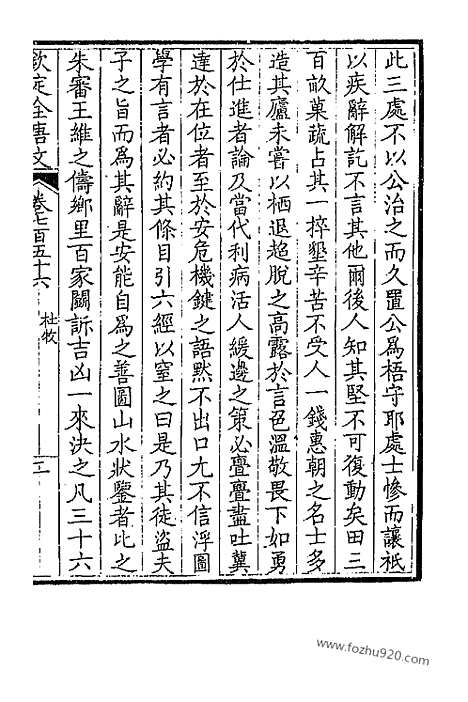 此三處不以公治之而久置公為梧守耶處士慘而讓祇
以疾辭解訖不言其他爾後人知其堅不可復動矣田三
百畝菓蔬占其一捽墾辛苦不受人一錢惠朝之名士多
造其廬未嘗以栖退超脫之高露於言色溫敬畏下如勇
於仕進者論及當代利病活人緩邊之策必亹亹盡吐冀
達於在位者至於安危機鍵之語默不出口尤不信浮圖
學有言者必約其條目引六經以窒之曰是乃其徒盜夫
子之旨而為其辭是安能自為之善圖山水狀鑒者比之
朱審王維之儔鄉里百家鬭訴吉凶一來決之凡三十六
欽定全唐文 卷七百五十六 杜牧 二
www.fozhu920.com